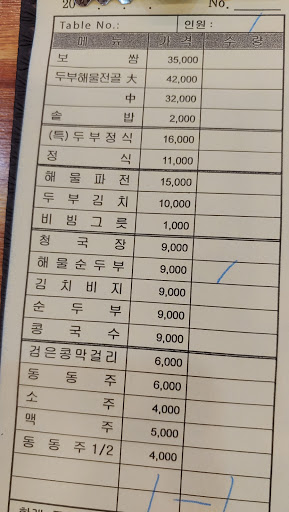 20 . . . No.
Table No.: 인원 : /
메 뉴 가 격 수 량
보 쌈 35,000
두부해물전골 大 42,000
中 32,000
솥 밥 2,000
(특) 두 부 정 식 16,000
정 식 11,000
해 물 파 전 15,000
두 부 김 치 10,000
비 빔 그 릇 1,000
청 국 장 9,000
해 물 순 두 부 9,000 /
김 치 비 지 9,000
순 두 부 9,000
콩 국 수 9,000
검은콩막걸리 6,000
동 동 주 6,000
소 주 4,000
맥 주 5,000
동 동 주 1/2 4,000
1-1